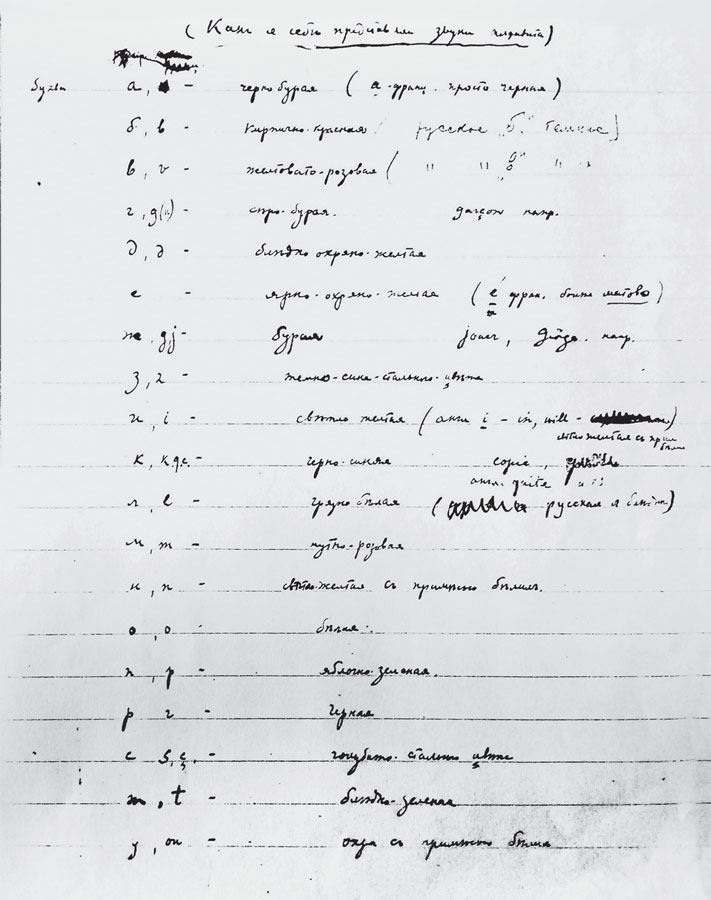 (Какъ я себѣ представляю звуки алфавита)
Буквы а, - черно бурая (a - франц. просто черная)
б, b - кирпично-красная русское „б." темнее]
в, v - желтовато-розовая ( " " б " "
г, g(h) - сѣро-бурая. garçon напр.
д, d - блѣдно охряно-желтая
е - ярко-охряно-желтая (é фран. болѣе матово)
ж, g, j - бурая jouer, напр.
з, z - темно-сине-стального цвѣта
и, i - свѣтло желтая (англ i - in, will - )
свѣтло желтая съ
к, k.q.c. - черно-синяя copie,
англ. quite
л, l - грязно бѣлая ( русская л )
м, m - мутно-розовая
н, n - свѣтло-желтая съ примѣсью бѣлилъ.
о, o - бѣлая.
п, p - яблочно-зеленая.
р r - черная
с s, ç, - голубато-стального цвѣта
т, t - блѣдно-зеленая
у, ou - охра съ примѣсью